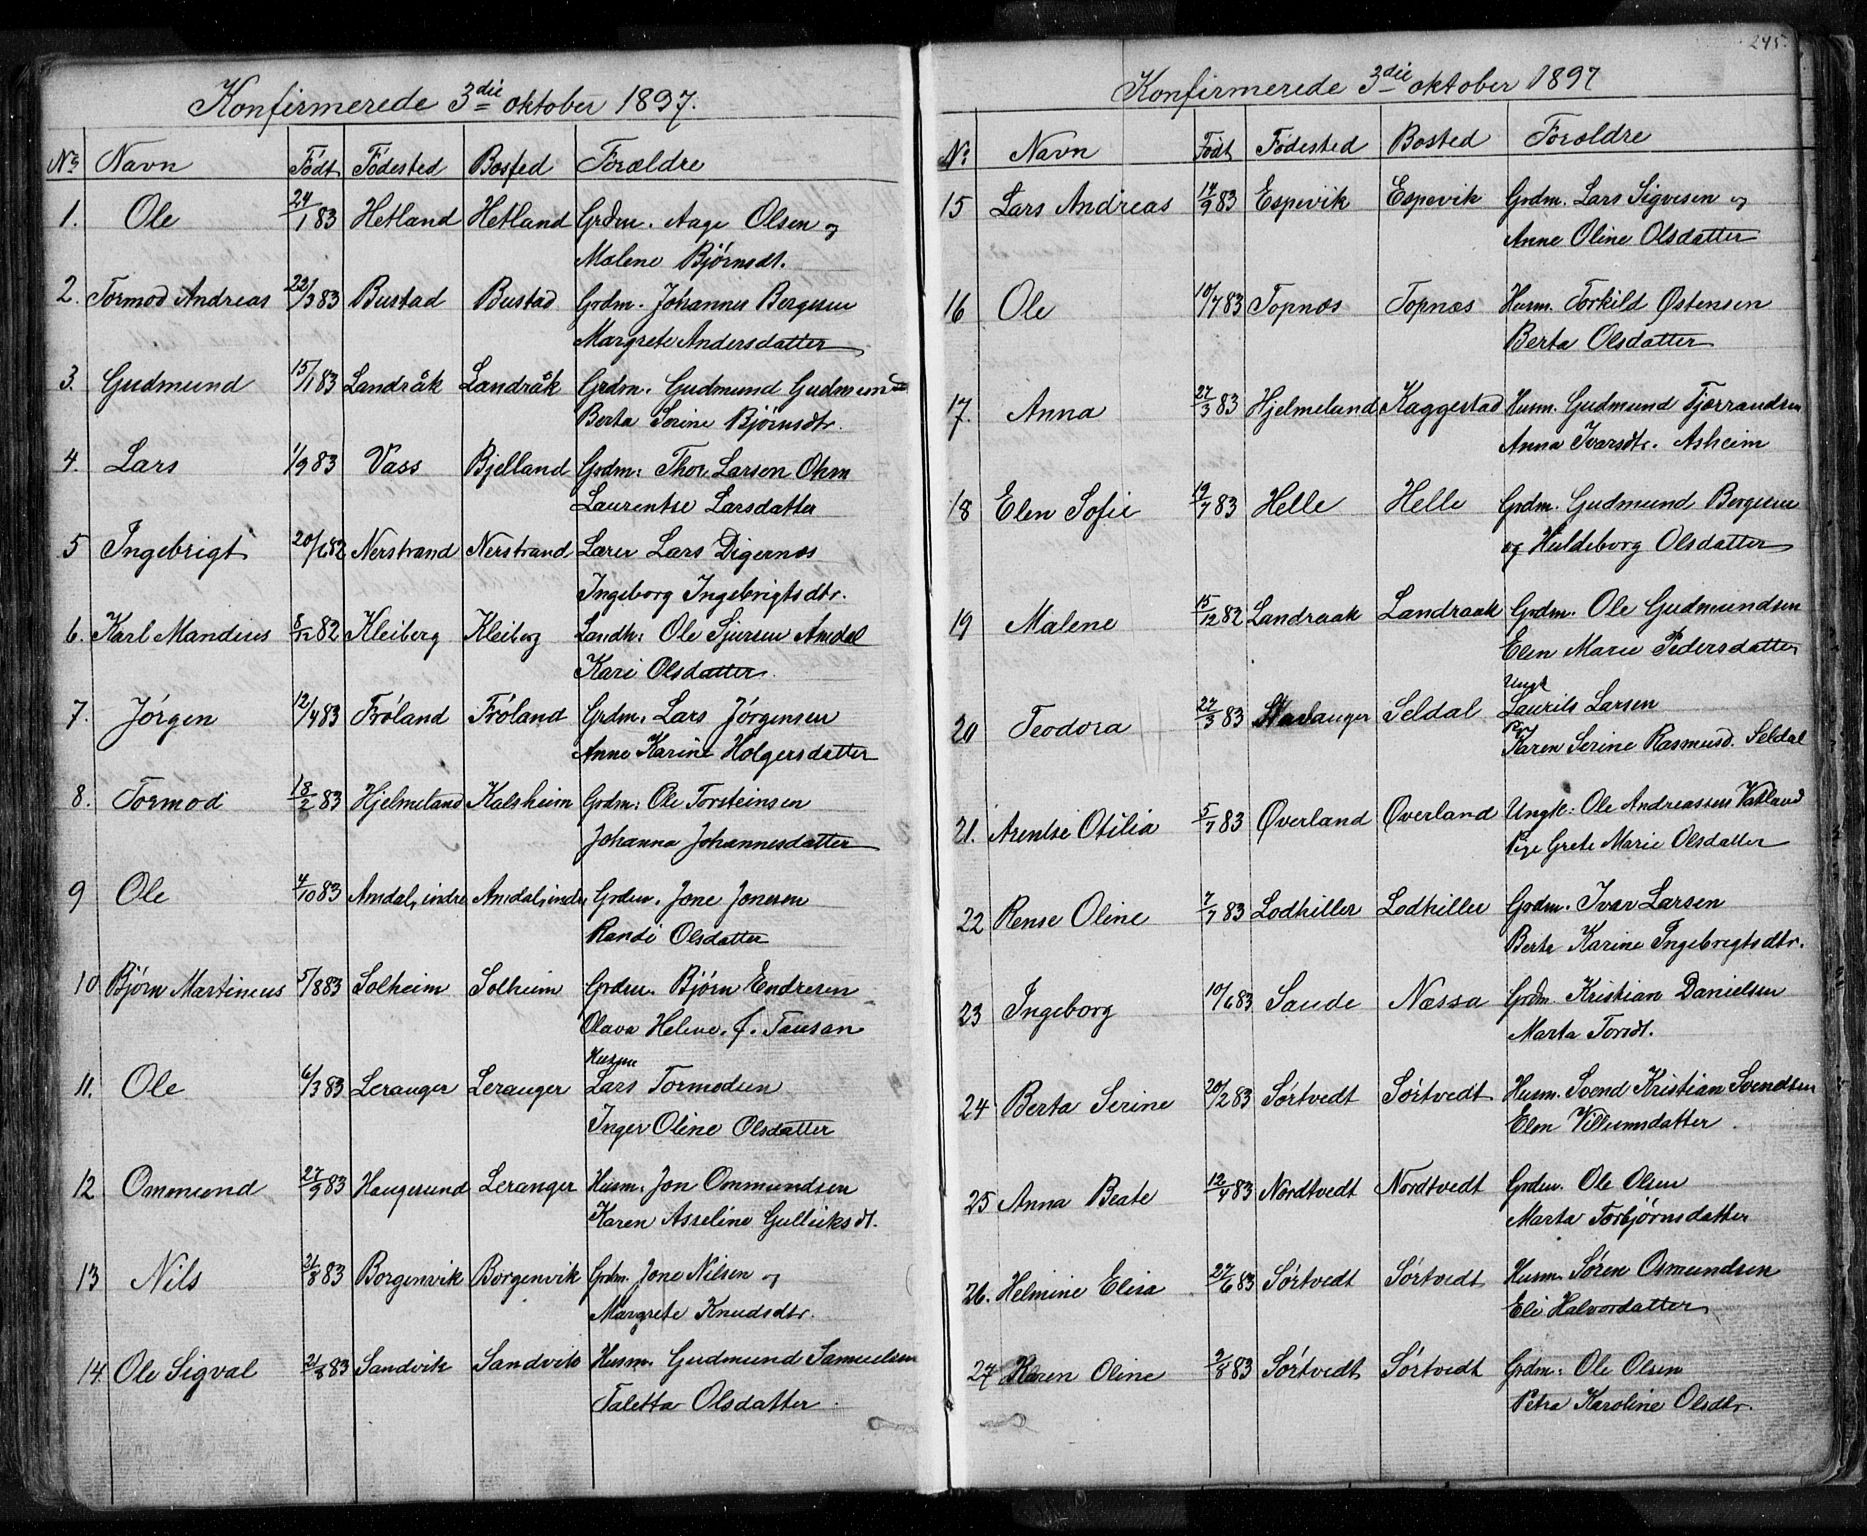 Konfirmerede 3die oktober 1897.
No Navn Født Fødested Bosted Forældre
1. Ole 24/1 83 Hetland Hetland Grdm. Aage Olsen og
Malene Bjørnsdt.
2. Tormod Andreas 22/3 83 Bustad Bustad Grdm. Johannes Bergesen
Margrete Andersdatter
3. Gudmund 15/1 83 Landråk Landråk Grdm. Gudmund
Berta Serine Bjørnsdtr.
4. Lars 1/9 83 Vass Bjelland Grdm: Thor Larsen Ohm
Laurentse Larsdatter
5 Ingebrigt 20/6 82 Nerstrand Nerstrand Lærer Lars Digernæs
Ingeborg Ingebrigtsdtr.
6. Karl Mandius 8/12 82 Kleiberg Kleiberg Landh: Ole Sjursen Amdal
Kari Olsdatter
7. Jørgen 12/4 83 Frøland Frøland Grdm: Lars Jørgensen
Anne Karine Holgersdatter
8. Tormod 18/2 83 Hjelmeland Kalsheim Grdm: Ole Torsteinsen
Johanna Johannesdatter
9 Ole 4/10 83 Amdal, indre Amdal, indre Grdm. Jone Jonesen
Randi Olsdatter
10 Bjørn Martinius 5/8 83 Solheim Solheim Grdm. Bjørn Endresen
Olava Helene. J. Tausan
Husm
11. Ole 6/3 83 Leranger Leranger Lars Tormodsen
Inger Oline Olsdatter
12 Ommund 27/9 83 Haugesund Leranger Husm. Jon Ommundsen
Karen Asseline Gulleiksdt.
13 Nils 31/8 83 Borgenvik Borgenvik Grdm. Jone Nilsen og
Margrete Knudsdtr.
14. Ole Sigval 21/8 83 Sandvik Sandvik Husm. Gudmund Samuelsen
Taletta Olsdatter
245.
Konfirmerede 3die oktober 1897
No Navn Født Fødested Bosted Foræld­re
15 Lars Andreas 14/9 83 Espevik Espevik Grdm. Lars Sigvesen og
Anne Oline Olsdatter
16 Ole 10/7 83 Topnæs Topnæs Husm. Torkild Østensen
Berta Olsdatter
17. Anna 27/3 83 Hjelmeland Kaggestad Husm. Gudmund Tjærrandsen
Anna Ivarsdtr. Asheim
18 Elen Sofie 19/7 83 Helle Helle Grdm. Gudmund Bergesen
og Huldeborg Olsdatter
19 Malene 15/12 82 Landraak Landraak Grdm. Ole Gudmundsen
Elen Marie Pedersdatter
Ungk
20 Teodora 27/3 83 Stavanger Seldal Laurits Larsen
Karen Serine Rasmusd. Seldal
21. Arentse Otilia 5/7 83 Øverland Øverland Ungk: Ole Andreassen Vatland
Pige Grete Marie Olsdatter
22 Rense Oline 7/7 83 Lodhiller Lodhiller Grdm. Ivar Larsen
Berta Karine Ingebrigtsdtr.
23 Ingeborg 10/6 83 Saude Næssa Grdm. Kristian Danielsen
Marta Toredt.
24 Berta Serine 20/2 83 Sørtvedt Sørtvedt Husm. Svend Kristian Svendsen
Elen Villumsdatter
25 Anna Beate 12/4 83 Nordtvedt Nordtvedt Grdm. Ole Olsen
Marta Torbjørnsdatter
26. Helmine Elisa 27/6 83 Sørtvedt Sørtvedt Husm. Søren Osmundsen
Eli Halvordatter
27 Karen Oline 2/8 83 Sørtvedt Sørtvedt Grdm: Ole Olsen
Petra Karoline Olsdtr.